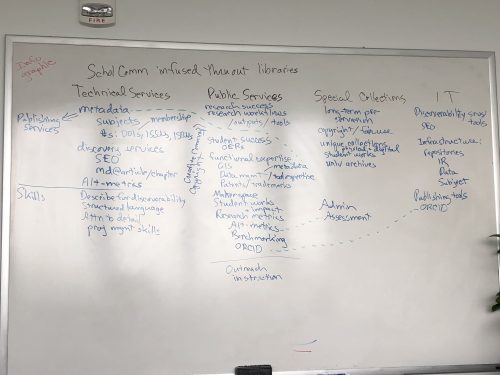 FIRE
Info graphic
Schol Comm infused thruout libraries
Technical Services
Publishing Services
metadata
subjects
membership
#s: DOIs, ISSNs, ISBNs
discovery services
SEO
md@article/chapter
Alt-metrics
Skills
Describe for discoverability
Structured language
Attn to detail
proj mgmt skills
Public Services
research success
research workflows
/outputs/tools
student success
OERs
Functional expertise
GIS
metadata
Data mgmt/
Patents/trademarks
Makerspace
Student works
Research impact metrics
Alt-metrics
Benchmarking
ORCID
Outreach
instruction
Special Collections
long-term preservation
copyright/
unique collections
digital
student works
univ archives
Admin
Assessment
IT
Discoverability
tools
SEO
Infrastructure:
repositories
IR
Data
Subject
Publishing tools
ORCID